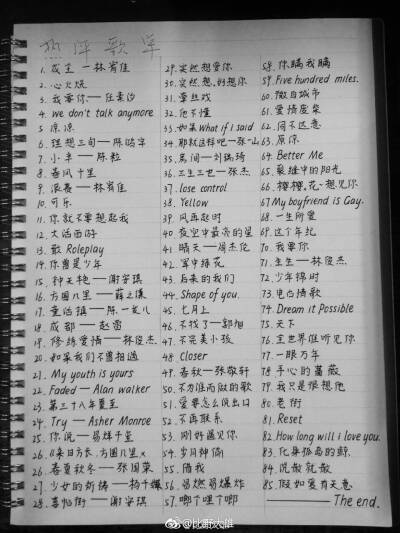 热评歌单
1. 成全 — 林宥嘉
2. 心火烧
3. 我要你 — 任素汐
4. we don't talk anymore
5. 凉凉
6. 理想三旬 — 陈鸿宇
7. 小半 — 陈粒
8. 春风十里
9. 浪费 — 林宥嘉
10. 可乐
11. 你就不要想起我
12. 大话西游
13. 敢 Roleplay
14. 你曾是少年
15. 钟无艳 — 谢安琪
16. 方圆几里 — 薛之谦
17. 童话镇 — 陈一发儿
18. 成都 — 赵雷
19. 修炼爱情 — 林俊杰
20. 如果我们不曾相遇
21. My youth is yours
22. Faded — Alan walker
23. 第三十八年夏至
24. Try — Asher Monroe
25. 你说 — 易烊千玺
26. 《来日方长、方圆几里》
26. 春夏秋冬 — 张国荣
27. 少女的祈祷 — 杨千嬅
28. 喜帖街 — 谢安琪
29. 突然想爱你
30. 突然想、好想你
31. 牵丝戏
32. 他不懂
33. 如果What if I said
34. 那就这样吧 — 张一山
35. 房间 — 刘瑞琦
36. 三生三世 — 张杰
37. lose control
38. Yellow
39. 风再起时
40. 夜空中最亮的星
41. 晴天 — 周杰伦
42. 军中绿花
43. 后来的我们
44. Shape of you.
45. 七月上
46. 不找了 — 郭旭
47. 不完美小孩
48. Closer
49. 春秋 — 张敬轩
50. 不为谁而作的歌
51. 爱要怎么说出口
52. 不再联系
53. 刚好遇见你
54. 岁月神偷
55. 借我
56. 易燃易爆炸
57. 哪个哩个啷
58. 你瞒我瞒
59. Five hundred miles.
60. 微白城市
61. 爱情废柴
62. 词不达意
63. 原谅
64. Better Me
65. 裂缝中的阳光
66. 樱樱花·想见你
67. My boyfriend is Gay.
68. 一生所爱
69. 这个年纪
70. 我要你
71. 生生 — 林俊杰
72. 少年锦时
73. 电台情歌
74. Dream it Possible
75. 天下
76. 全世界谁听见你
77. 一眼万年
78. 手心的蔷薇
79. 我只是很想他
80. 老街
81. Reset
82. How long will i love you.
83. 化身孤岛的鲸
84. 说散就散
85. 假如爱有天意
The end.